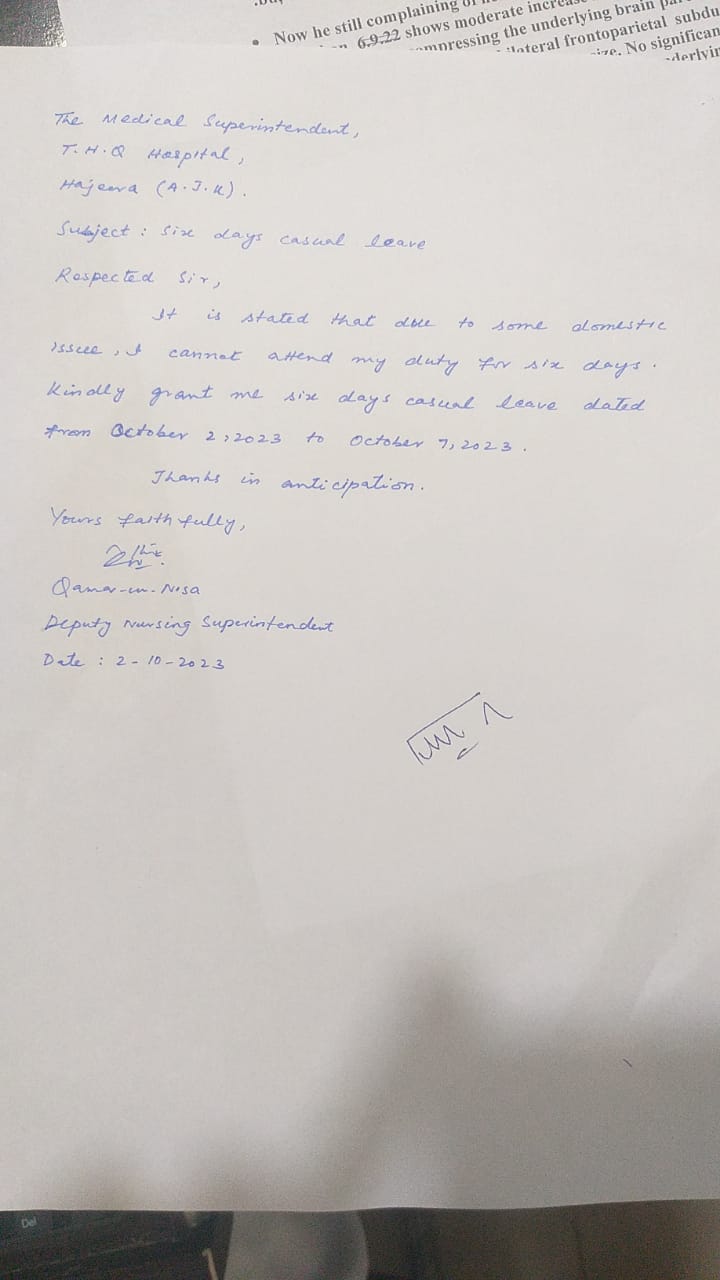 Now he still complaining of
6.9.22 shows moderate increase
mpressing the underlying brain
lateral frontoparietal subdu
ize. No significan
derlyin
The Medical Superintendent,
T.H.Q Hospital,
Hajeera (A.J.K).
Subject : Six days casual leave
Respected Sir,
It is stated that due to some domestic
issue, I cannot attend my duty for six days.
Kindly grant me six days casual leave dated
from October 2, 2023 to October 7, 2023.
Thanks in anticipation.
Yours faithfully,
Qamar-un-Nisa
Deputy Nursing Superintendent
Date : 2-10-2023
Del